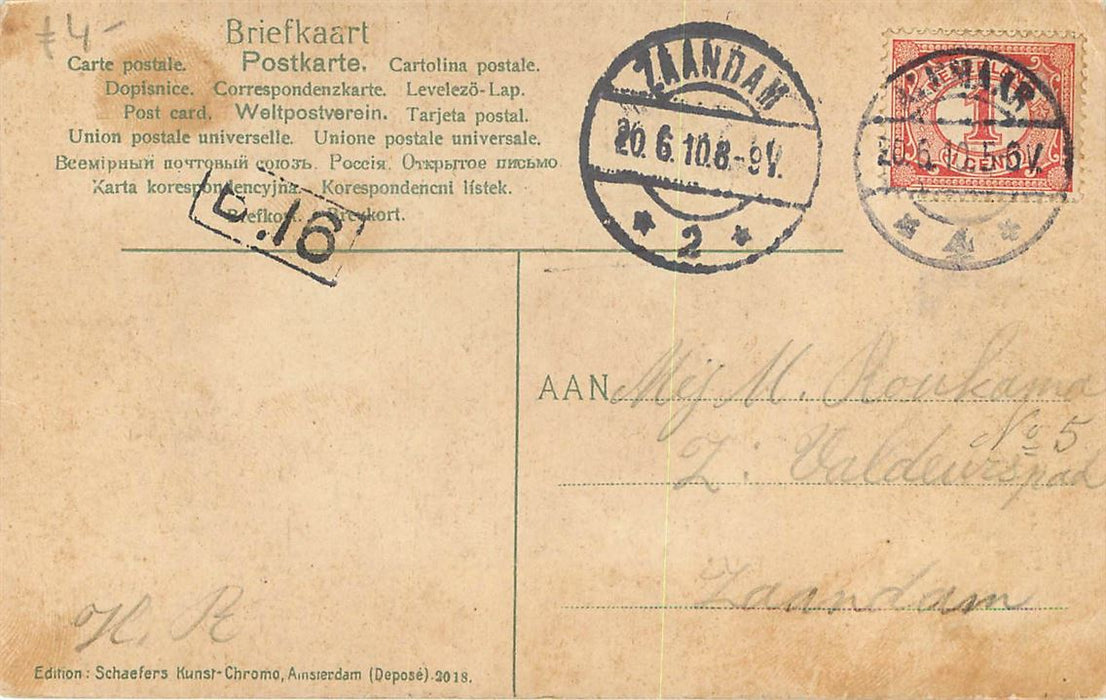 £4-
Briefkaart
Carte postale. Postkarte. Cartolina postale.
Dopisnice. Correspondenzkarte. Levelező-Lap.
Post card. Weltpostverein. Tarjeta postal.
Union postale universelle. Unione postale universale.
Всемірный почтовый союзъ. Россія. Открытое письмо
Karta korespondencyjna. Korespondencni lístek.
Briefkort. Brevkort.
D.16
ZAANDAM
20.6.10.8-9V.
2
ALKMAAR
20.6.10.5-6V
4
NEDERLAND
1
1 CENT
AAN Mej M. Ronkema
No 5
Z: Valdeurspad
Zaandam
H. R
Edition: Schaefers Kunst-Chromo, Amsterdam (Deposé) 2018.